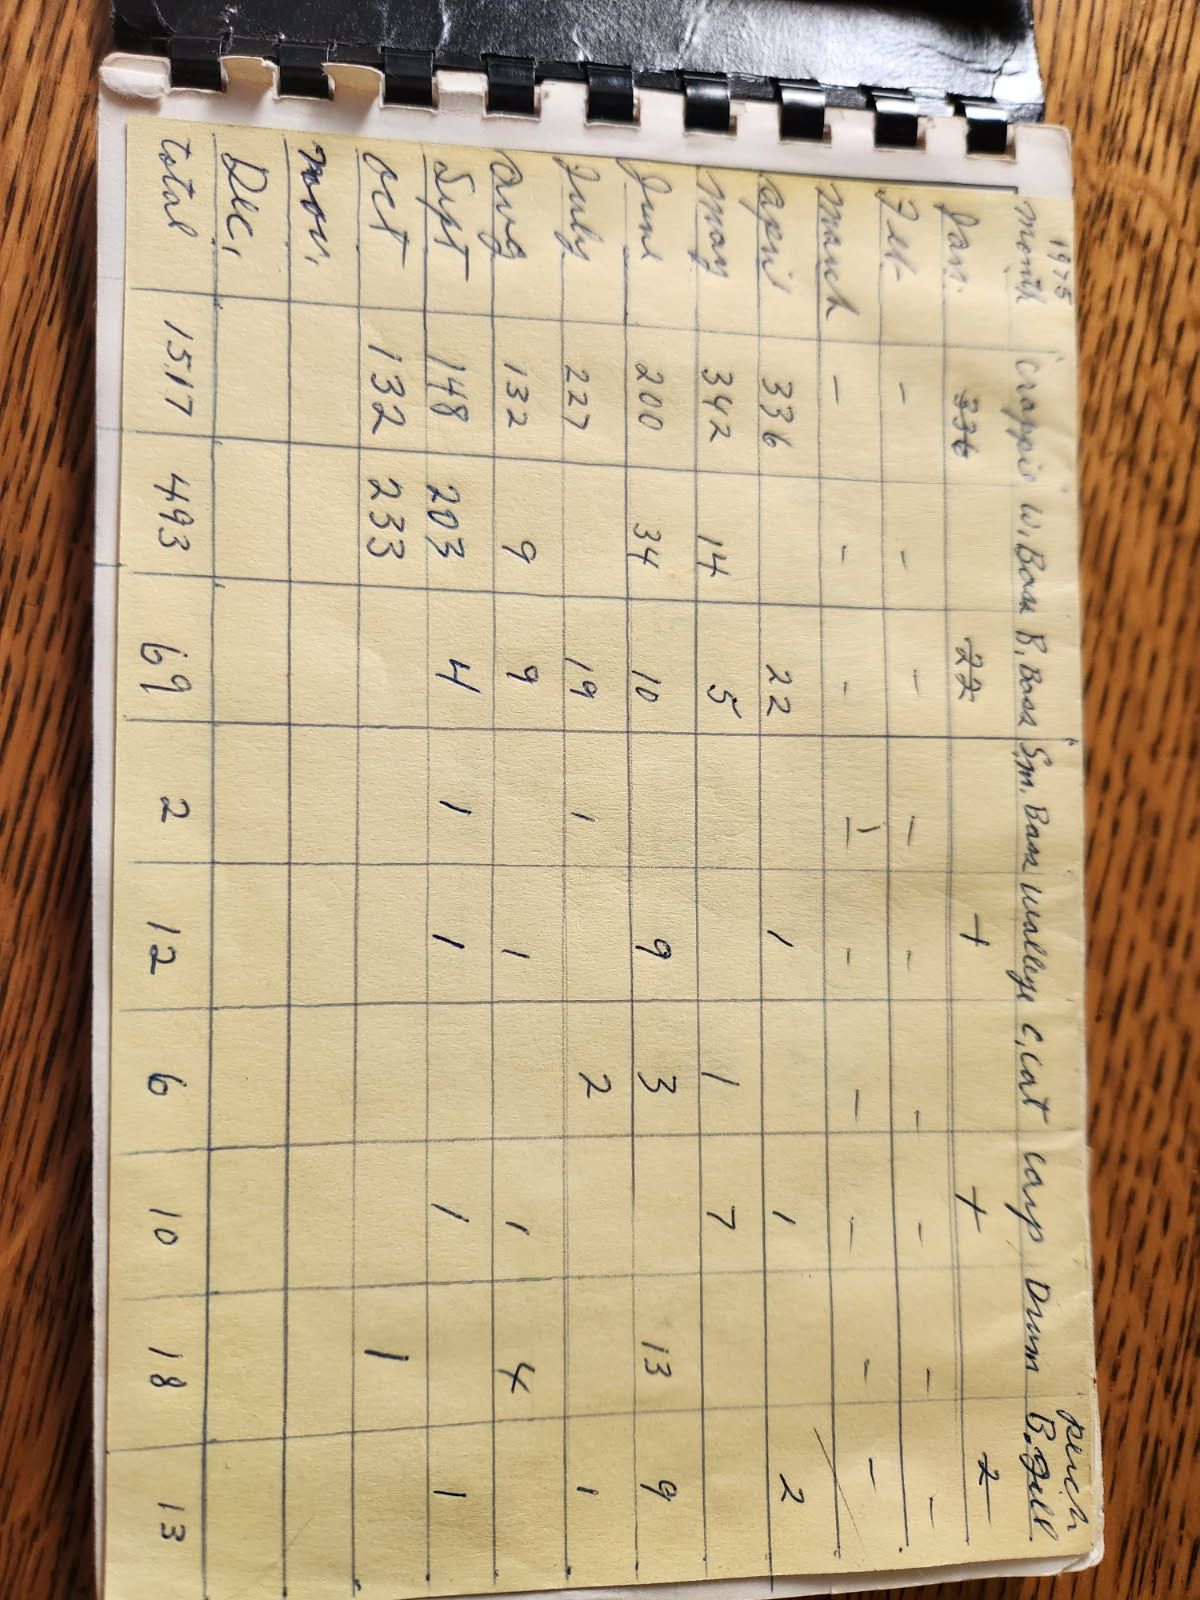 1975 perch
month crappie W. Bass B. Bass S.m. Bass walleye c. cat carp Drum B. Gill
Jan. 336 22 1 1 2
Feb. - - - - - - - - -
march - - - - - - - - -
april 336 22 1 1 2
may 342 14 5 1 7
June 200 34 10 9 3 13 9
July 227 19 1 2 1
Aug 132 9 9 1 1 4
Sept 148 203 4 1 1 1 1
Oct 132 233 1
nov.
Dec.
total 1517 493 69 2 12 6 10 18 13